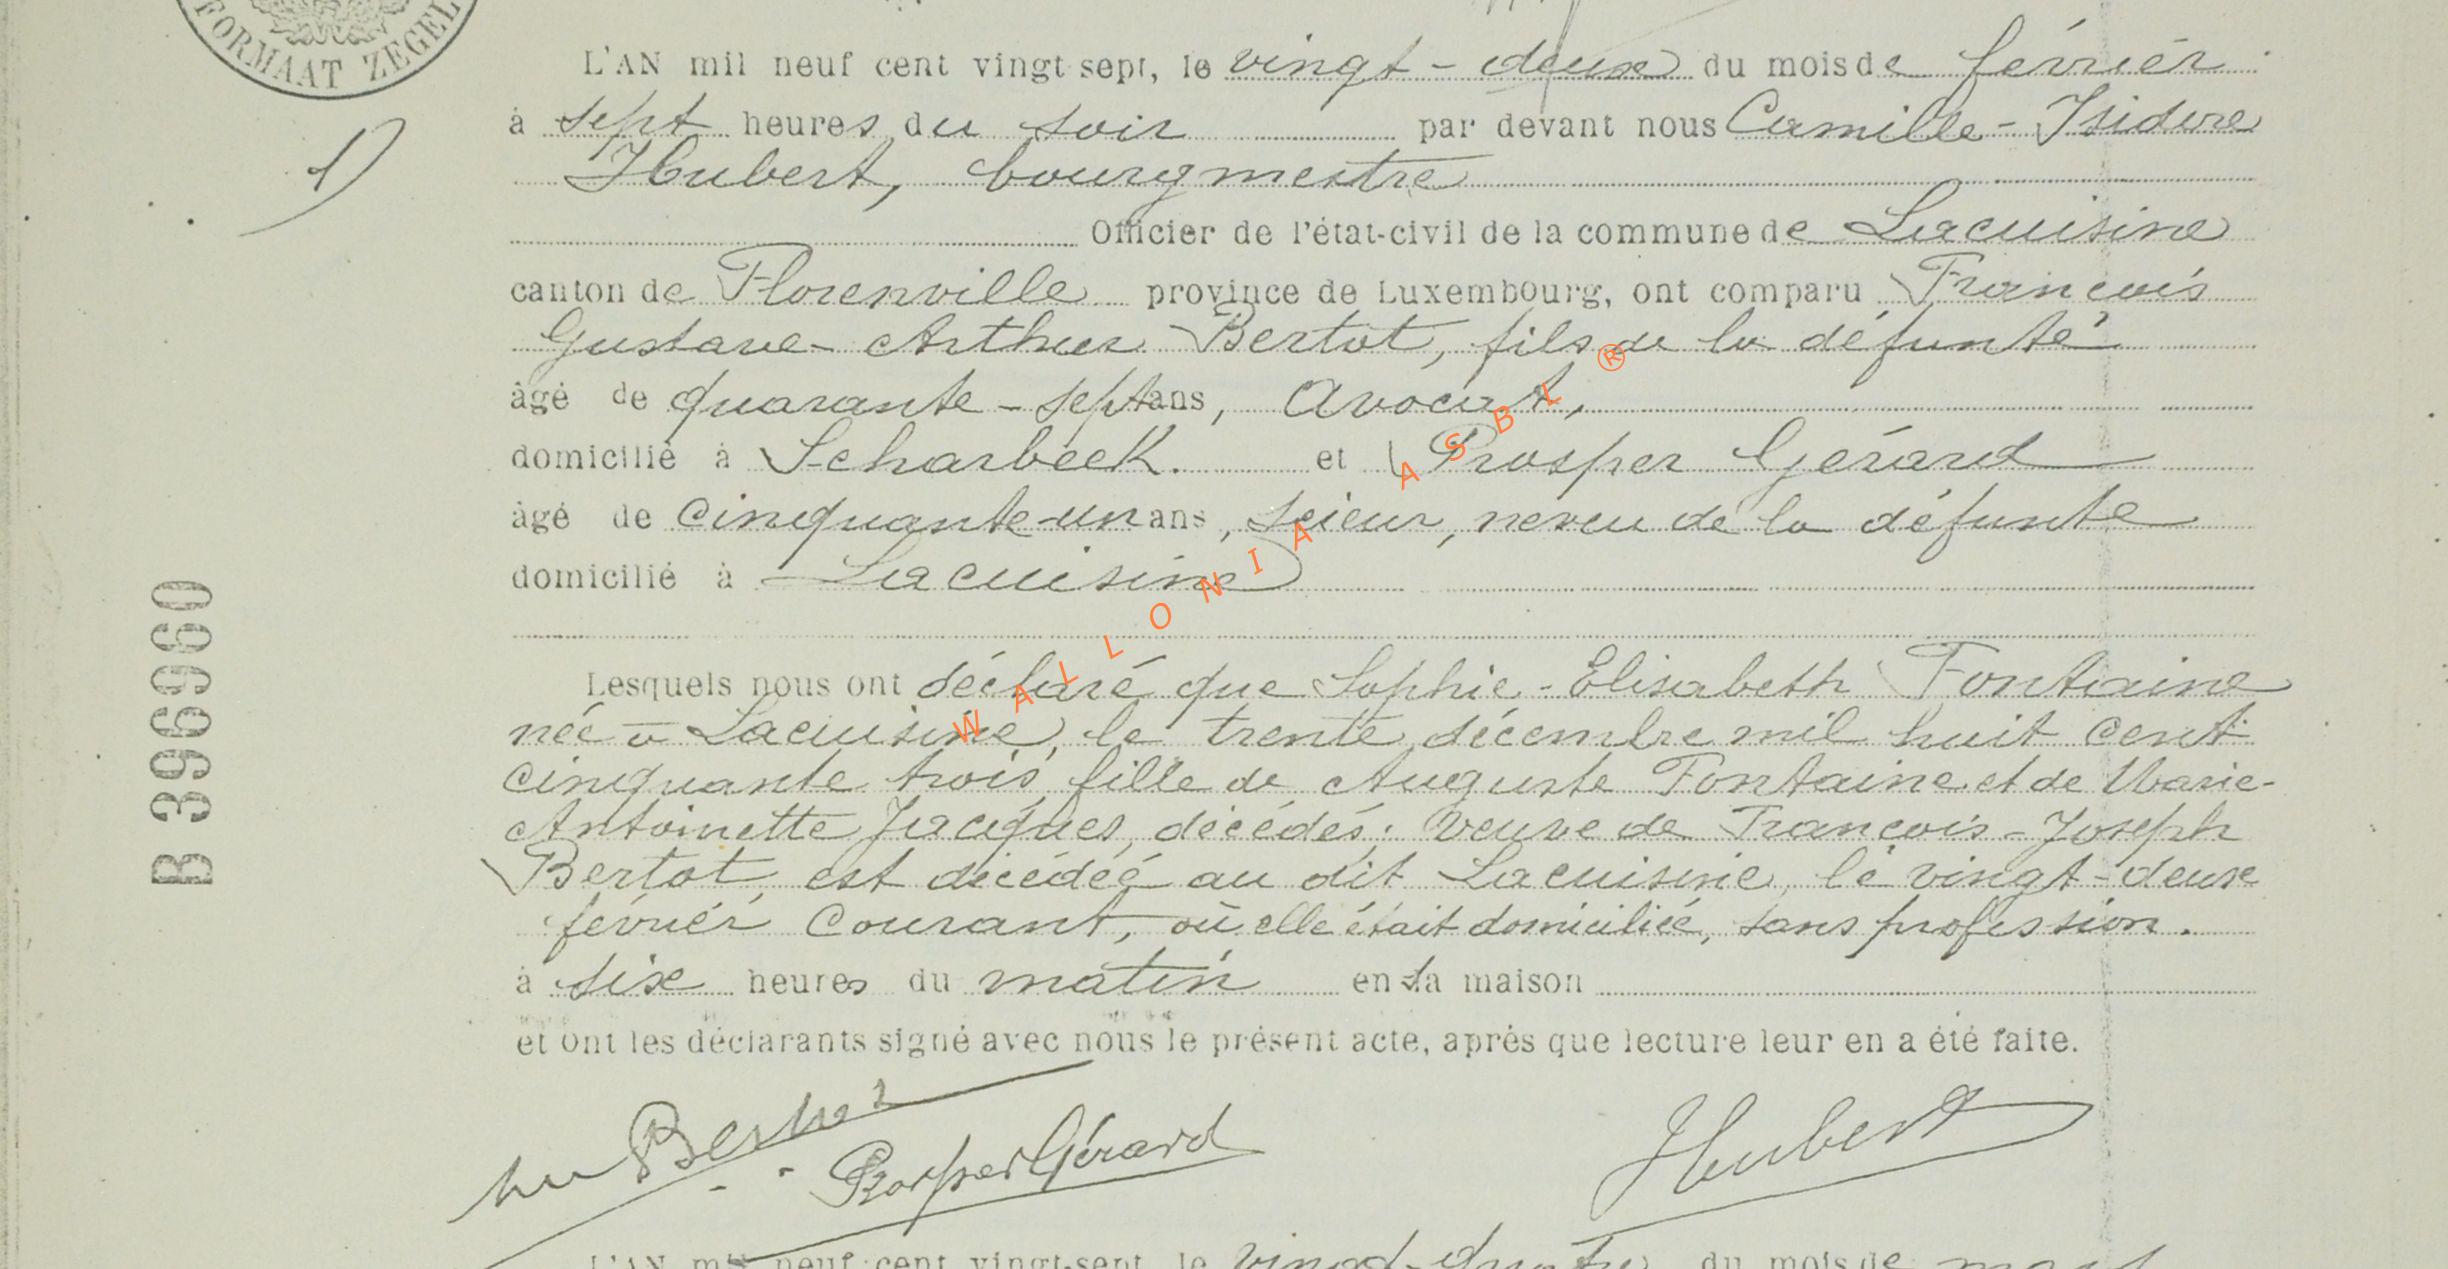 FORMAAT ZEGEL
L'AN mil neuf cent vingt sept, le vingt-deux du mois de février
à sept heures du soir par devant nous Camille-Isidore
1)
Hubert, bourgmestre
Officier de l'état-civil de la commune de Lacuisine
canton de Florenville province de Luxembourg, ont comparu François
Gustave-Arthur Bertot, fils de la défunte
âgé de quarante-sept ans, avocat,
domicilié à Scharbeek. et Prosper Gérard
âgé de cinquante-un ans, scieur, neveu de la défunte
domicilié à Lacuisine
WALLONIA ASBL ®
B 396960
Lesquels nous ont déclaré que Sophie-Elisabeth Fontaine
née à Lacuisine, le trente décembre mil huit cent
cinquante trois, fille de Auguste Fontaine et de Marie-
Antoinette Jacques, décédés, veuve de François-Joseph
Bertot, est décédée au dit Lacuisine, le vingt-deux
février courant, où elle était domiciliée, sans profession.
à six heures du matin en sa maison
et ont les déclarants signé avec nous le présent acte, après que lecture leur en a été faite.
Prosper Gérard
Hubert
L'AN mil neuf cent vingt-sept, le vingt-quatre du mois de mars